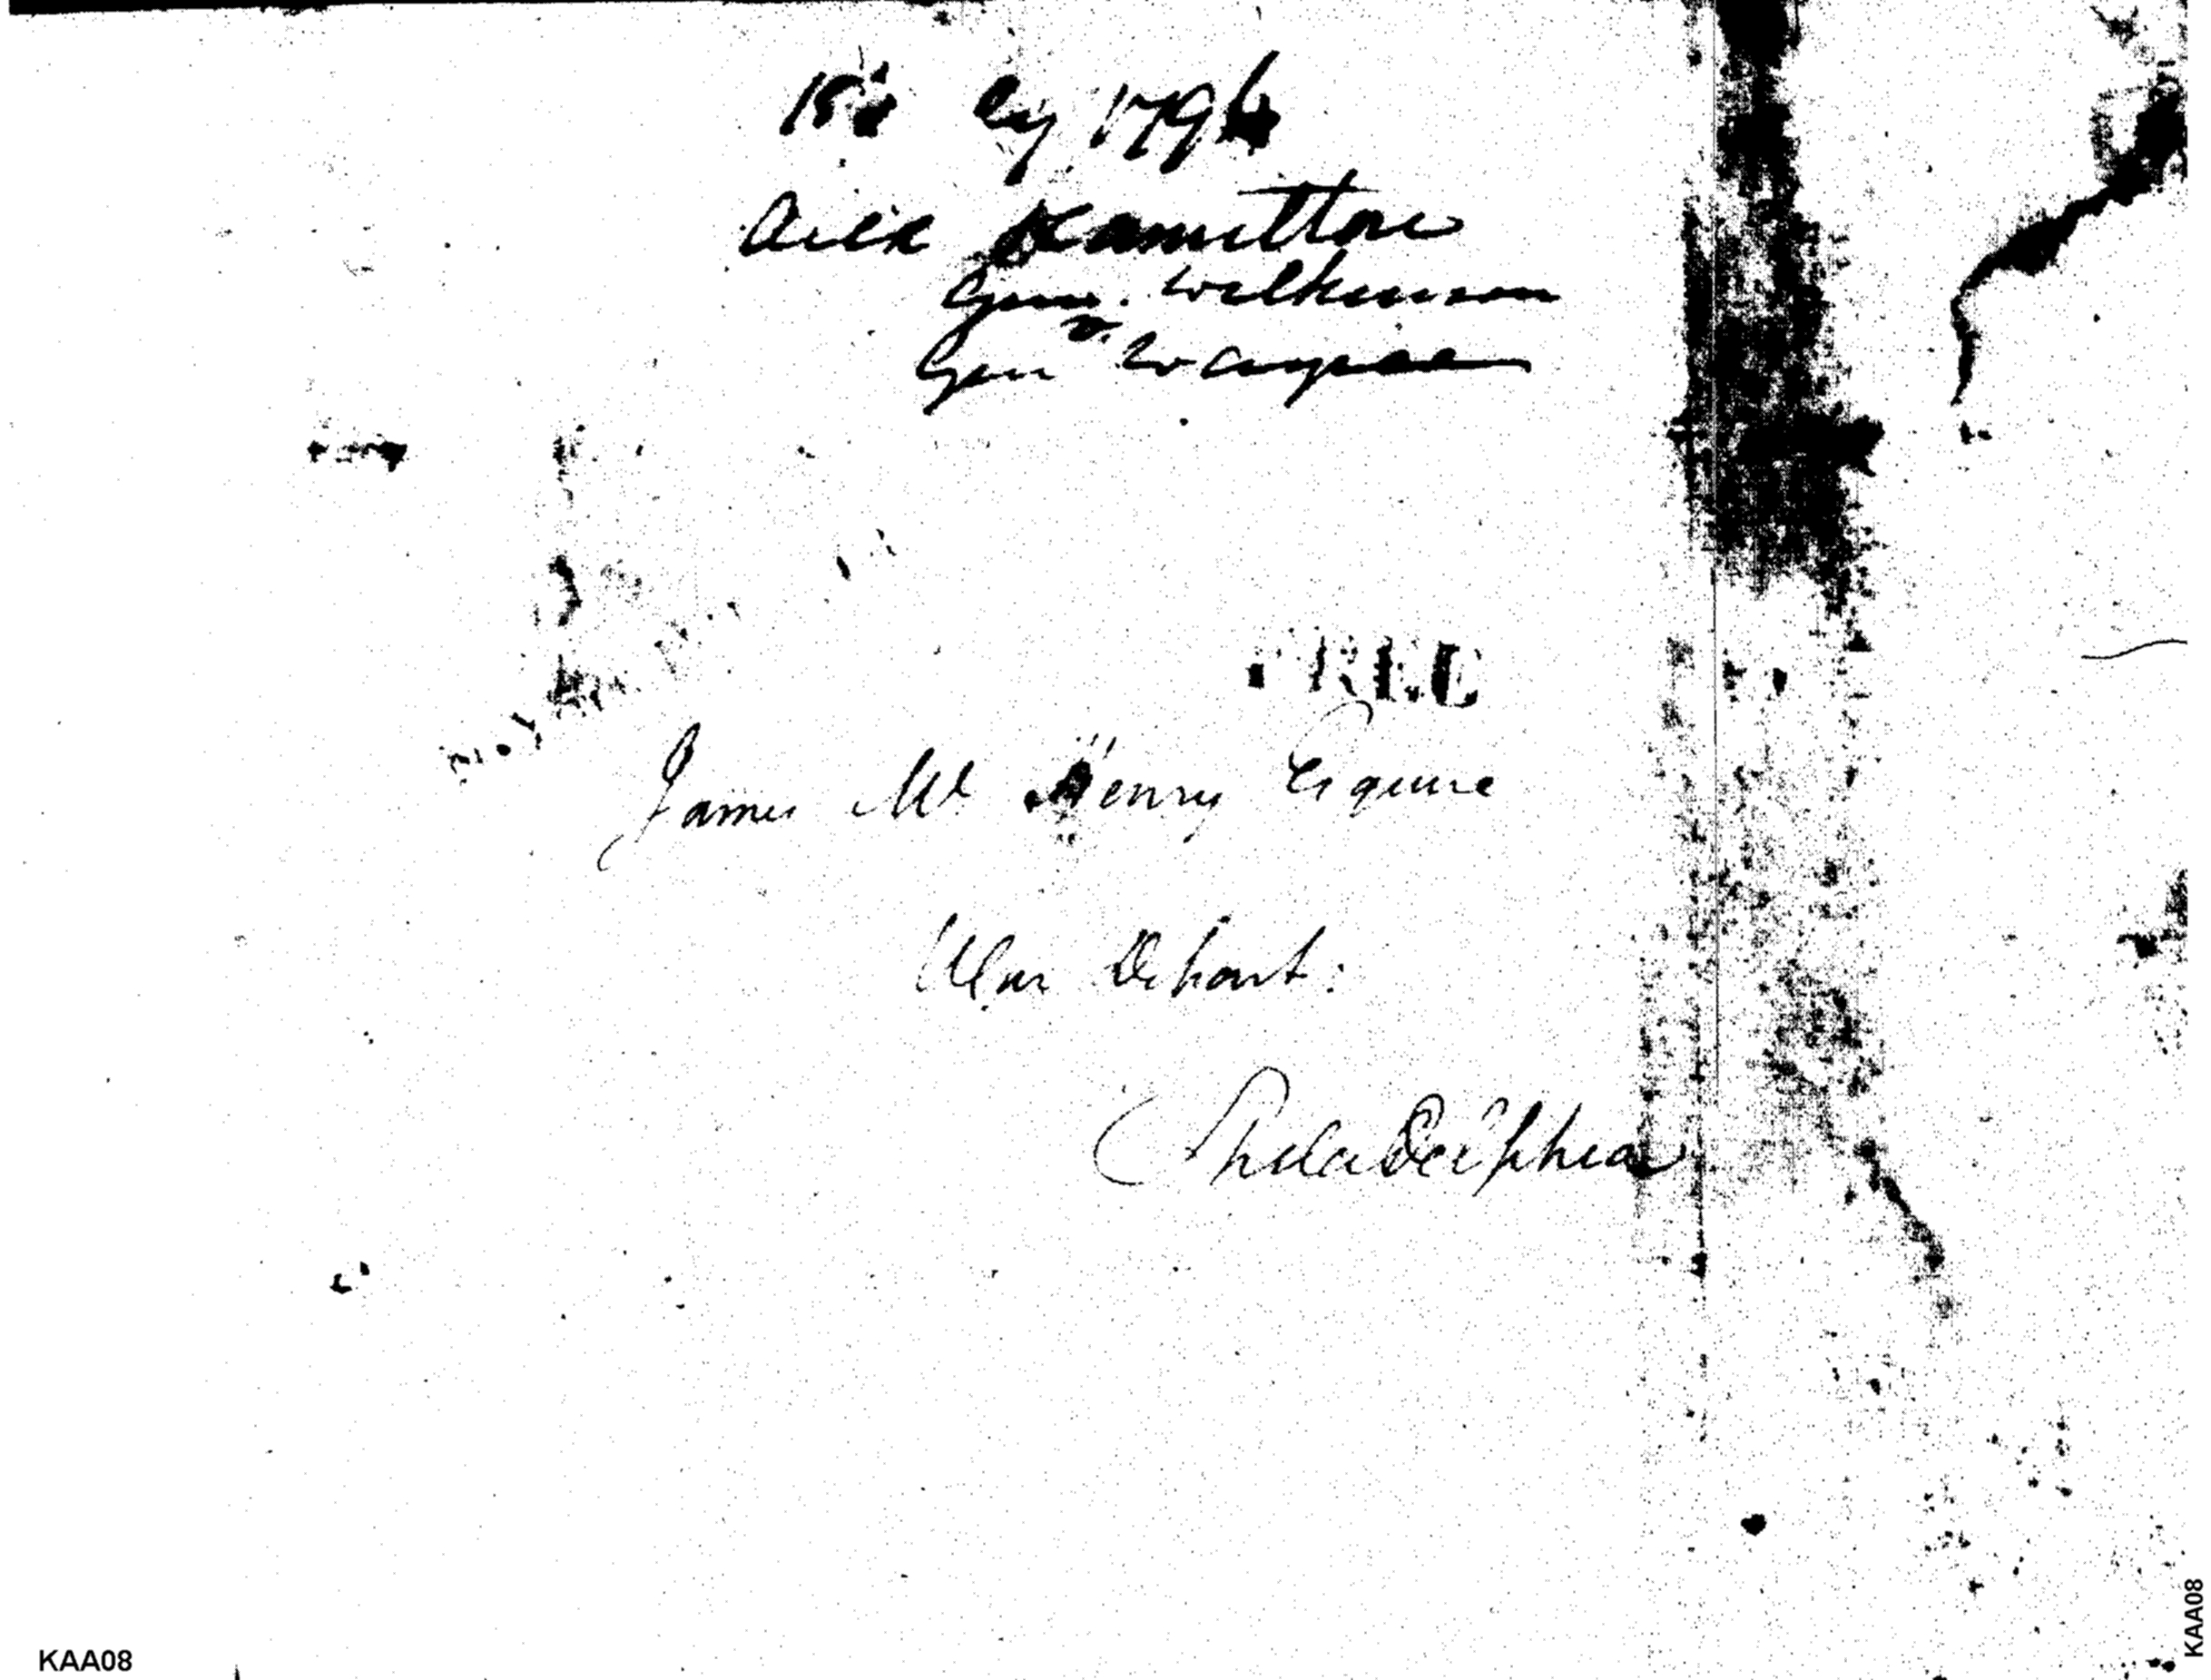 15 1796
Alex Hamilton
Gen. Wilkinson
v.
Gen Wayne
FREE
James Mc Henry Esquire
War Depart:
Philadelphia
KAA08
KAA08